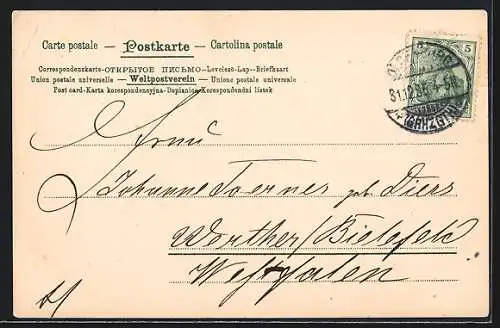 Carte postale — Postkarte — Cartolina postale
Correspondenzkarte-ОТКРЫТОЕ ПИСЬМО-Levelező-Lap-Brefkaart
Union postale universelle — Weltpostverein — Unione postale universale
Post card-Karta korespondencyjna-Dopisnice-Korespondendni listek
5
31.12.
Frau
Johanne Toerner geb. Diers
Werther/Bielefeld
Westfalen